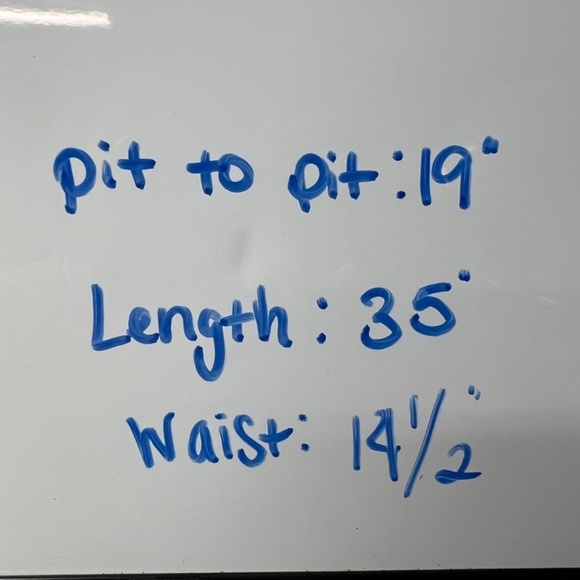 pit to pit: 19"
Length: 35"
Waist: 14 1/2"